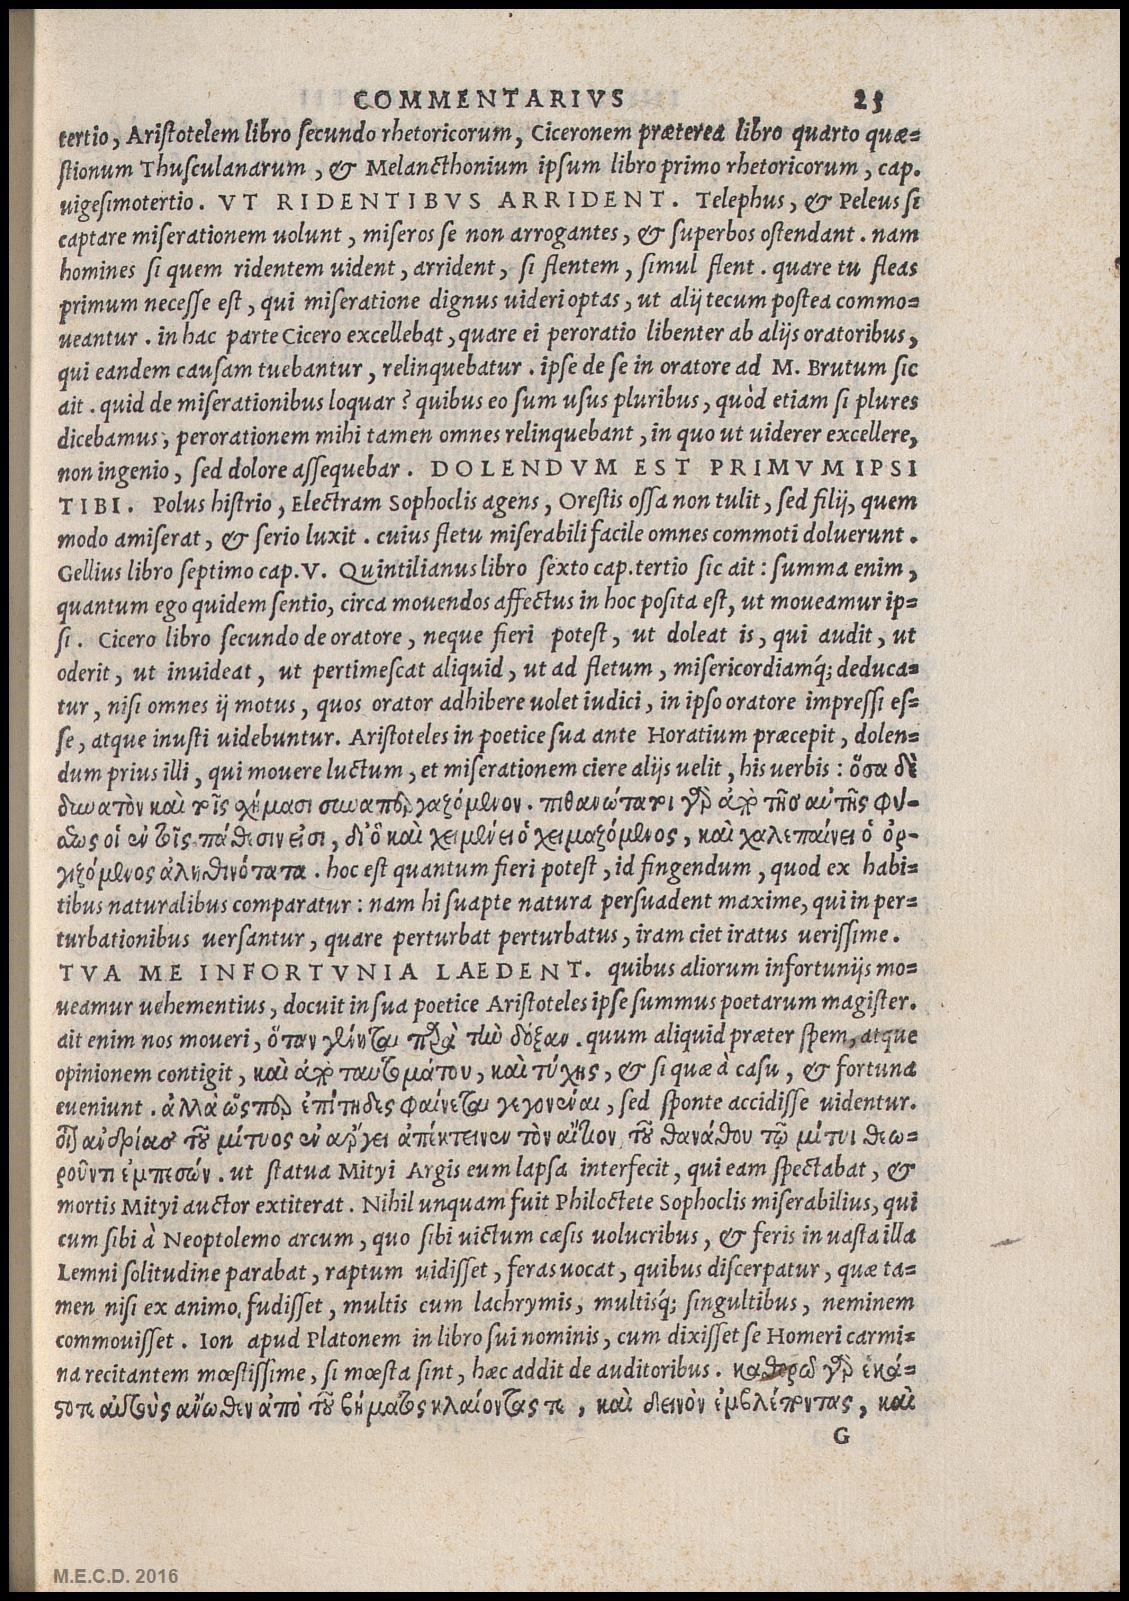 COMMENTARIVS 23
tertio, Aristotelem libro secundo rhetoricorum, Ciceronem præterea libro quarto quæ=
stionum Thusculanarum, & Melancthonium ipsum libro primo rhetoricorum, cap.
uigesimotertio. VT RIDENTIBVS ARRIDENT. Telephus, & Peleus si
captare miserationem uolunt, miseros se non arrogantes, & superbos ostendant. nam
homines si quem ridentem uident, arrident, si flentem, simul flent. quare tu fleas
primum necesse est, qui miseratione dignus uideri optas, ut alij tecum postea commo=
ueantur. in hac parte Cicero excellebat, quare ei peroratio libenter ab alijs oratoribus,
qui eandem causam tuebantur, relinquebatur. ipse de se in oratore ad M. Brutum sic
ait. quid de miserationibus loquar? quibus eo sum usus pluribus, quòd etiam si plures
dicebamus, perorationem mihi tamen omnes relinquebant, in quo ut uiderer excellere,
non ingenio, sed dolore assequebar. DOLENDVM EST PRIMVM IPSI
TIBI. Polus histrio, Electram Sophoclis agens, Orestis ossa non tulit, sed filij, quem
modo amiserat, & serio luxit. cuius fletu miserabili facile omnes commoti doluerunt.
Gellius libro septimo cap. V. Quintilianus libro sexto cap. tertio sic ait: summa enim,
quantum ego quidem sentio, circa mouendos affectus in hoc posita est, ut moueamur ip=
si. Cicero libro secundo de oratore, neque fieri potest, ut doleat is, qui audit, ut
oderit, ut inuideat, ut pertimescat aliquid, ut ad fletum, misericordiamq́; deduca=
tur, nisi omnes ij motus, quos orator adhibere uolet iudici, in ipso oratore impressi es=
se, atque inusti uidebuntur. Aristoteles in poetice sua ante Horatium præcepit, dolen=
dum prius illi, qui mouere luctum, et miserationem ciere alijs uelit, his uerbis: ὅσα δὲ
δυνατὸν καὶ τοῖς σχήμασι συναπεργαζόμενον. πιθανώτατοι γὰρ ἀπὸ τῆς αὐτῆς φύ-
σεως οἱ ἐν τοῖς πάθεσιν εἰσι, δι' ὃ καὶ χειμαίνει ὁ χειμαζόμενος, καὶ χαλεπαίνει ὁ ὀρ-
γιζόμενος ἀληθινότατα. hoc est quantum fieri potest, id fingendum, quod ex habi=
tibus naturalibus comparatur: nam hi suapte natura persuadent maxime, qui in per=
turbationibus uersantur, quare perturbat perturbatus, iram ciet iratus uerissime.
TVA ME INFORTVNIA LAEDENT. quibus aliorum infortunijs mo=
ueamur uehementius, docuit in sua poetice Aristoteles ipse summus poetarum magister.
ait enim nos moueri, ὅταν γένηται παρὰ τὴν δόξαν. quum aliquid præter spem, atque
opinionem contigit, καὶ ἀπὸ ταυτομάτου, καὶ τύχης, & si quæ à casu, & fortuna
eueniunt. ἀλλὰ ὥσπερ ἐπίτηδες φαίνεται γεγονέναι, sed sponte accidisse uidentur.
ἀνδριὰς τοῦ μίτυος ἐν ἄργει ἀπέκτεινεν τὸν αἴτιον τοῦ θανάτου τῷ μίτυι θεω-
ροῦντι ἐμπεσών. ut statua Mityi Argis eum lapsa interfecit, qui eam spectabat, &
mortis Mityi auctor extiterat. Nihil unquam fuit Philoctete Sophoclis miserabilius, qui
cum sibi à Neoptolemo arcum, quo sibi uictum cæsis uolucribus, & feris in uasta illa
Lemni solitudine parabat, raptum uidisset, feras uocat, quibus discerpatur, quæ ta=
men nisi ex animo fudisset, multis cum lachrymis, multisq́; singultibus, neminem
commouisset. Ion apud Platonem in libro sui nominis, cum dixisset se Homeri carmi=
na recitantem mœstissime, si mœsta sint, hæc addit de auditoribus. καθορῶ γὰρ ἑκά-
στοτε αὐτοὺς ἄνωθεν ἀπὸ τοῦ βήματος κλαίοντας τε, καὶ δεινὸν ἐμβλέποντας, καὶ
G
M.E.C.D. 2016